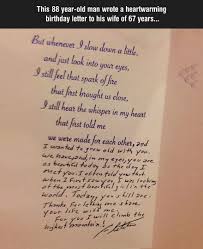 This 88 year-old man wrote a heartwarming
birthday letter to his wife of 67 years...
But whenever I slow down a little,
and just look into your eyes,
I still feel that spark of fire
that first brought us close,
I still hear the whisper in my heart
that first told me
we were made for each other, and
I wanted to grow old with you.
We have, and in my eyes, you are
as beautiful today as the day I
met you. I often told you that
when I first saw you, I was looking
at the most beautiful girl in the
world. Today, you still are.
Thanks for letting me share
your life with me.
For you I will climb the
highest mountain!